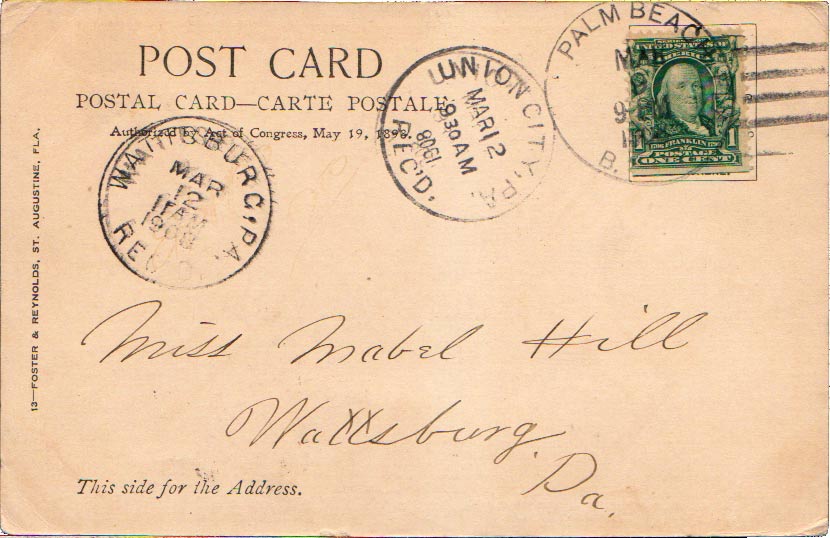 POST CARD
POSTAL CARD—CARTE POSTALE.
Authorized by Act of Congress, May 19, 1898.
13—FOSTER & REYNOLDS, ST. AUGUSTINE, FLA.
WATTSBURG, PA.
MAR
12
11 AM
1908
REC'D.
UNION CITY, PA.
MAR 12
9 30 AM
1908
REC'D.
PALM BEACH
MAR
9
UNITED STATES OF
AMERICA
FRANKLIN
POSTAGE
1
ONE CENT
Miss Mabel Hill
Wattsburg
Pa.
This side for the Address.